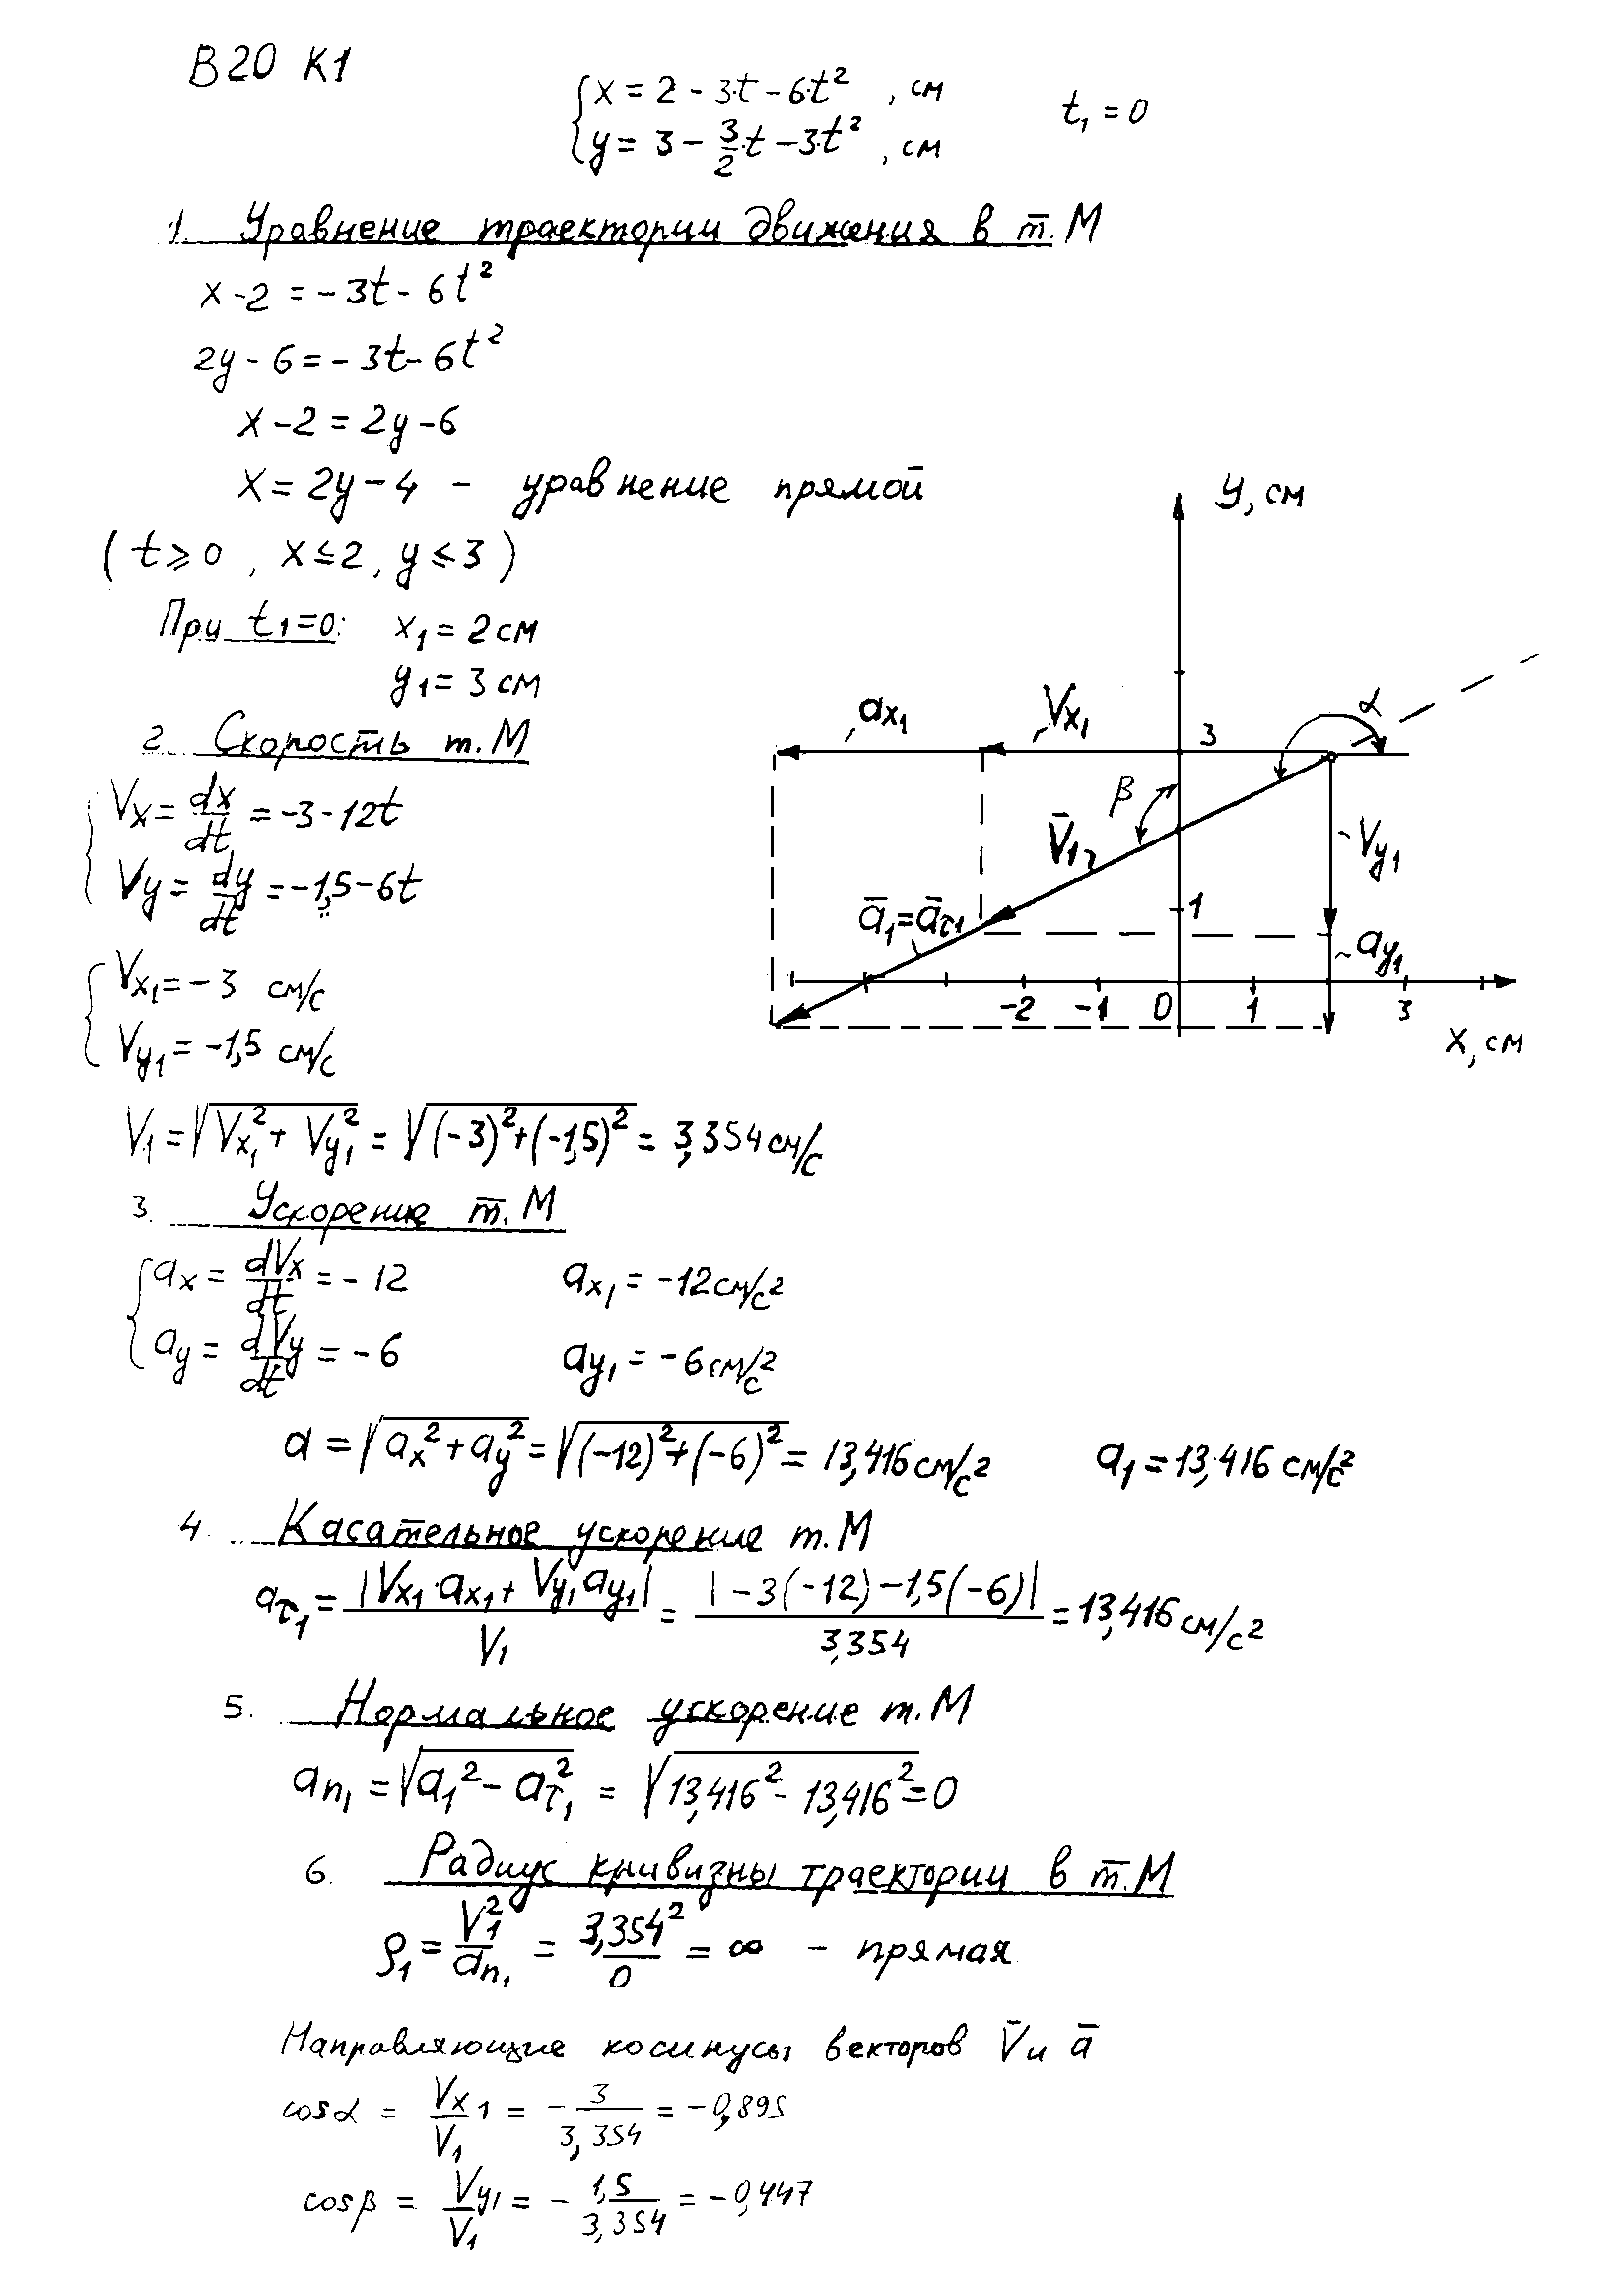 B20 K1
{ x = 2 - 3·t - 6·t² , см
{ y = 3 - 3/2·t - 3·t² , см
t₁ = 0
1. Уравнение траектории движения в т.М
x - 2 = - 3t - 6t²
2y - 6 = - 3t - 6t²
x - 2 = 2y - 6
x = 2y - 4 - уравнение прямой
( t ⩾ 0 , x ≤ 2 , y ≤ 3 )
При t₁=0: x₁ = 2 см
y₁ = 3 см
y, см
aₓ₁
Vₓ₁
3
α
β
V̄₁
V_y₁
ā₁=ā_τ₁
1
a_y₁
-2 -1 0 1 3
x, см
2. Скорость т.М
{ Vₓ = dx/dt = -3 - 12t
{ V_y = dy/dt = -1,5 - 6t
{ Vₓ₁ = - 3 см/с
{ V_y₁ = -1,5 см/с
V₁ = √(Vₓ₁² + V_y₁²) = √((-3)²+(-1,5)²) = 3,354 см/с
3. Ускорение т.М
{ aₓ = dVₓ/dt = - 12 aₓ₁ = -12 см/с²
{ a_y = dV_y/dt = - 6 a_y₁ = -6 см/с²
a = √(aₓ² + a_y²) = √((-12)²+(-6)²) = 13,416 см/с² a₁ = 13,416 см/с²
4. Касательное ускорение т.М
a_τ₁ = |Vₓ₁·aₓ₁ + V_y₁ a_y₁| / V₁ = |-3(-12) - 1,5(-6)| / 3,354 = 13,416 см/с²
5. Нормальное ускорение т.М
a_n₁ = √(a₁² - a_τ₁²) = √(13,416² - 13,416²) = 0
6. Радиус кривизны траектории в т.М
ρ₁ = V₁²/a_n₁ = 3,354²/0 = ∞ - прямая
Направляющие косинусы векторов V̄ и ā
cosα = Vₓ₁/V₁ = - 3/3,354 = -0,895
cosβ = V_y₁/V₁ = - 1,5/3,354 = -0,447